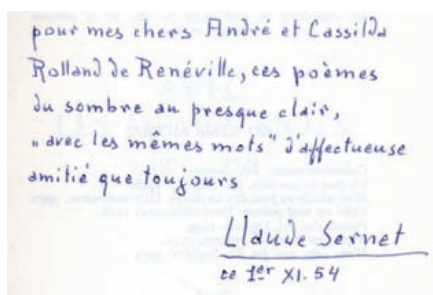 pour mes chers André et Cassilda
Rolland de Renéville, ces poèmes
du sombre au presque clair,
„avec les mêmes mots" d'affectueuse
amitié que toujours
Claude Sernet
ce 1er XI. 54